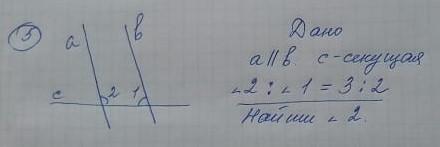 3
a
b
c
2
1
Дано
a || b. c - секущая
∠2 : ∠1 = 3 : 2
Найти ∠2.